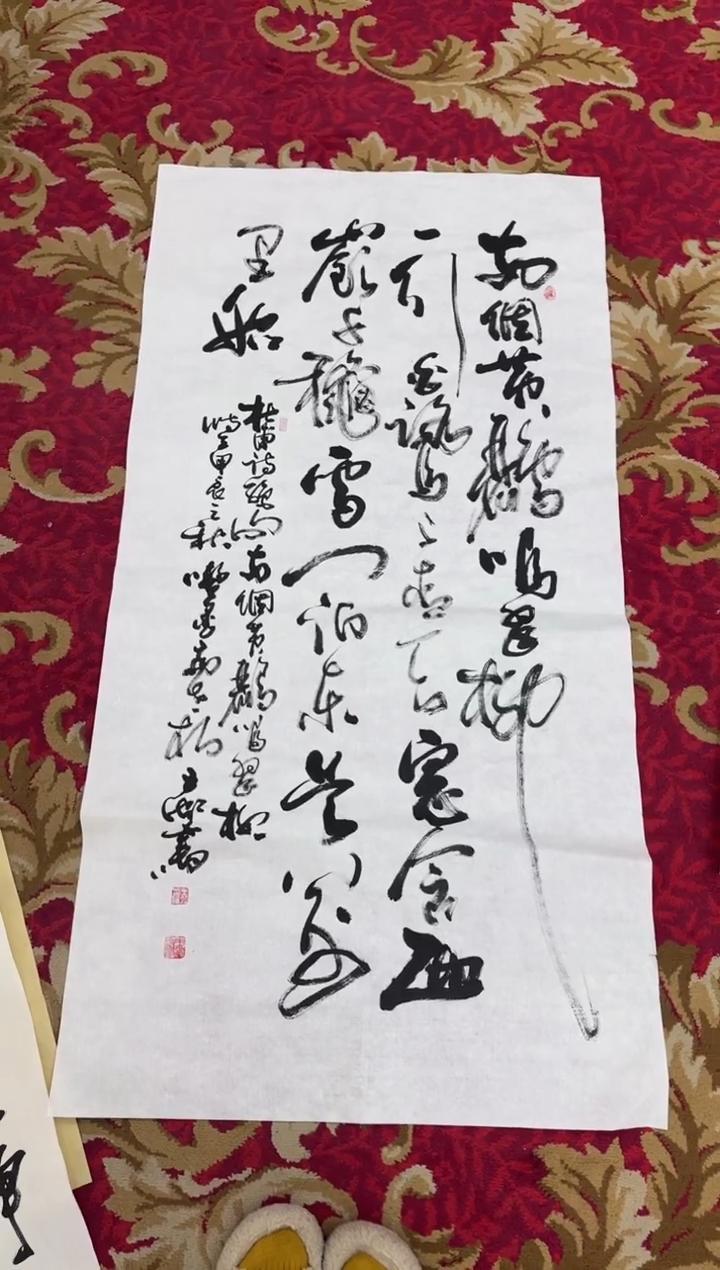 两個黄鸝鳴翠柳
一行白鷺上青天窗含西
嶺千秋雪門泊東吴万
里船
杜甫詩絶句两個黄鸝鳴翠柳
時在甲辰之秋